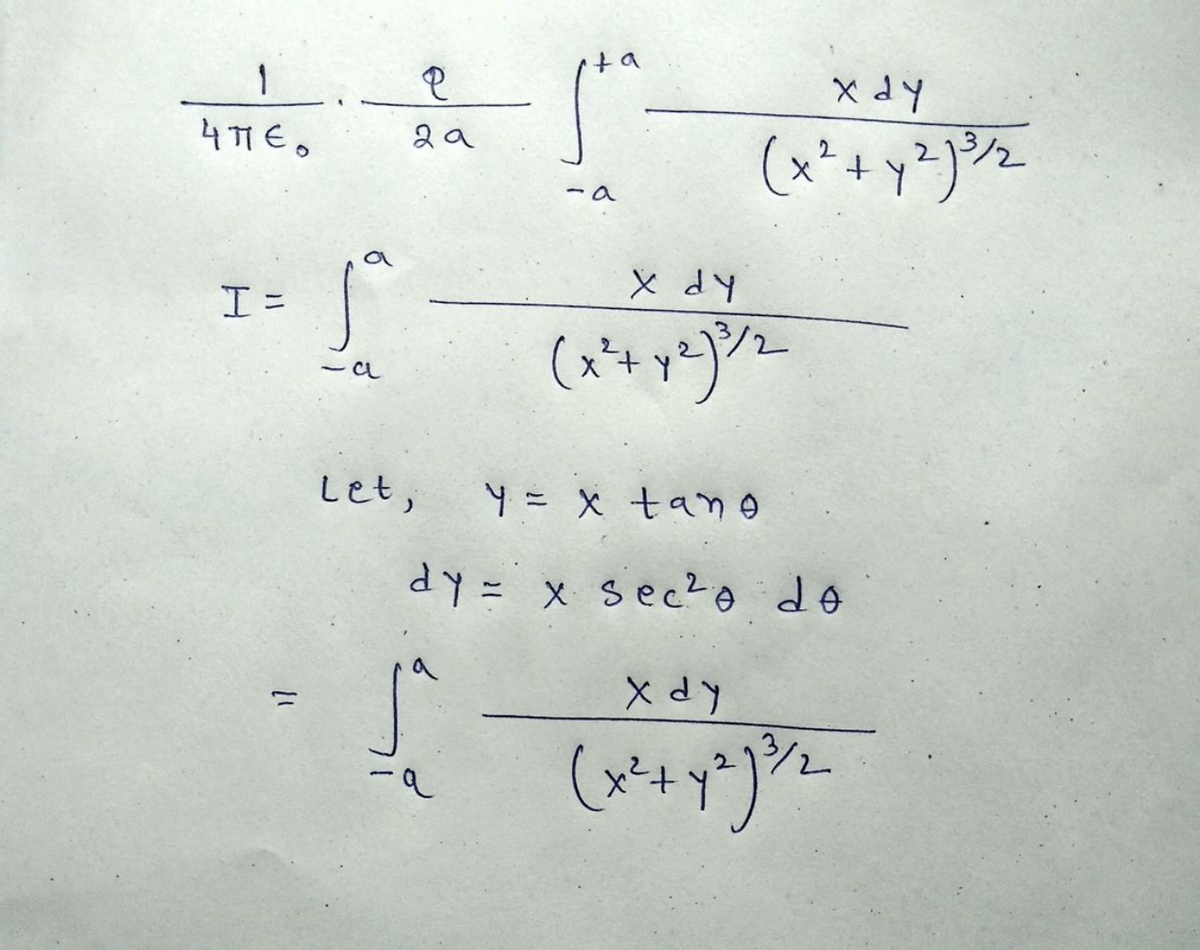 1/(4πϵ₀) · Q/(2a) ∫₋ₐ⁺ᵃ x dy/(x² + y²)^(3/2)
I = ∫₋ₐᵃ x dy/(x² + y²)^(3/2)
Let, y = x tanθ
dy = x sec²θ dθ
= ∫₋ₐᵃ x dy/(x² + y²)^(3/2)